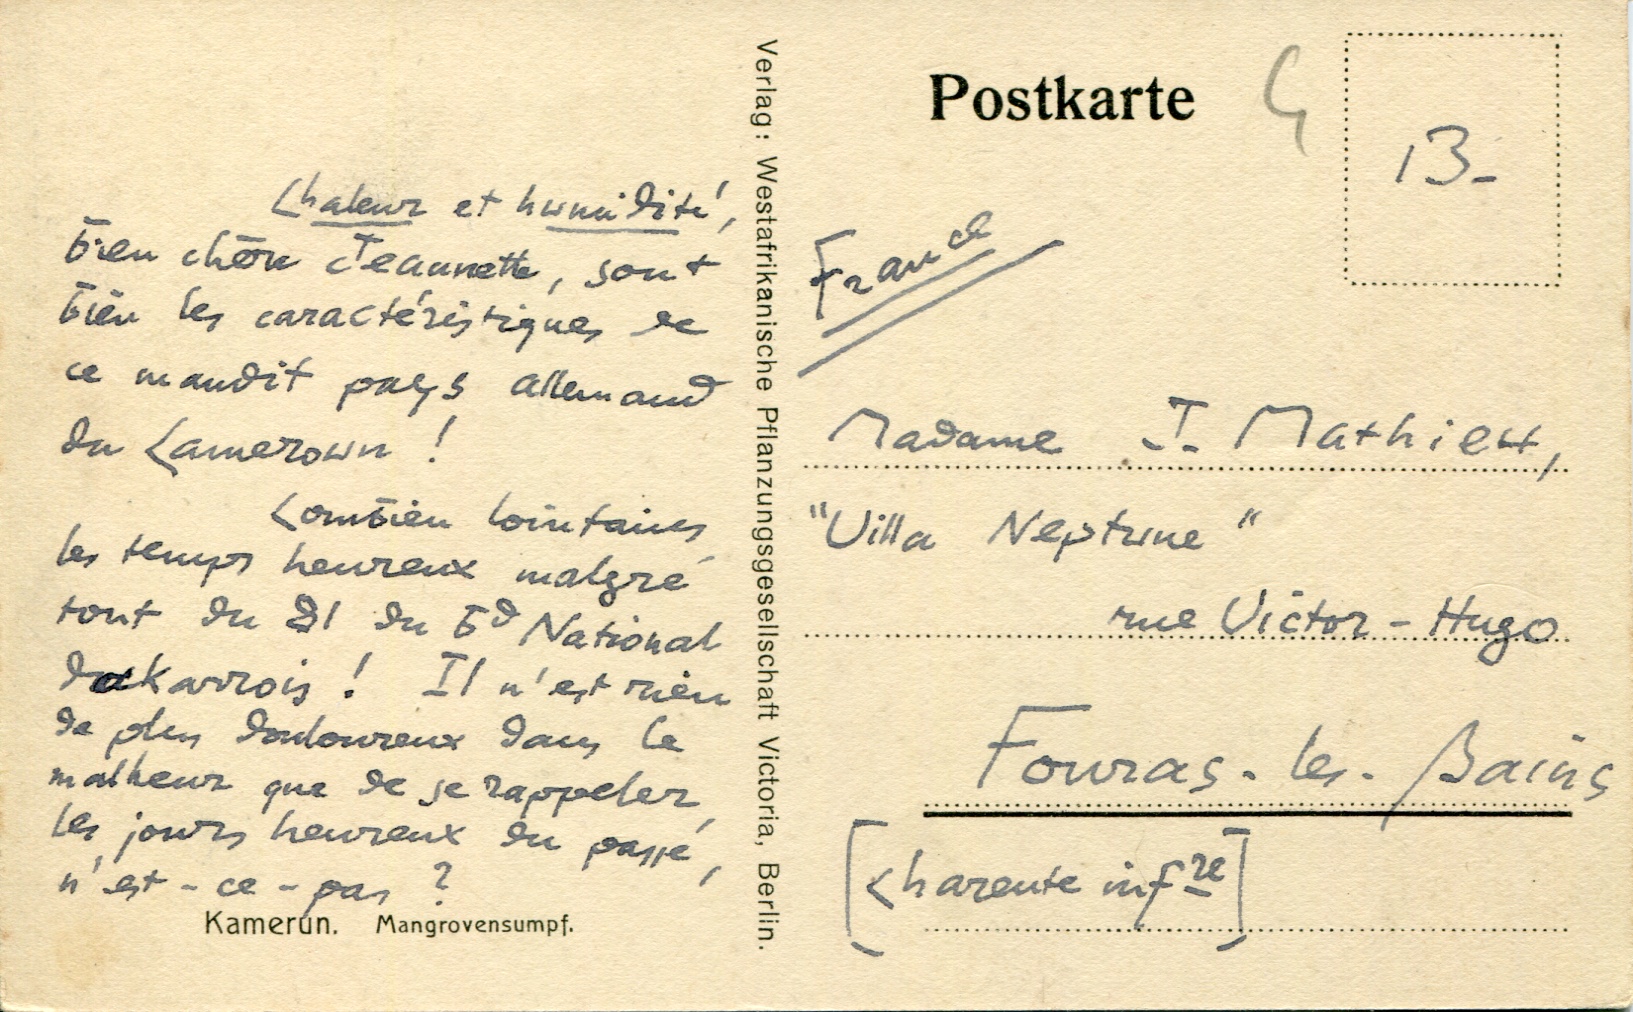 Chaleur et humidité,
bien chère Jeannette, sont
bien les caractéristiques de
ce maudit pays allemand
du Cameroun !
Combien lointains
les temps heureux malgré
tout du 81 du Bd National
dakarrois ! Il n'est rien
de plus douloureux dans le
malheur que de se rappeler
les jours heureux du passé,
n'est-ce-pas ?
Kamerun. Mangrovensumpf.
Verlag: Westafrikanische Pflanzungsgesellschaft Victoria, Berlin.
Postkarte
13-
France
Madame J. Mathieu,
"Villa Neptune"
rue Victor-Hugo
Fouras-les-Bains
[Charente infre]